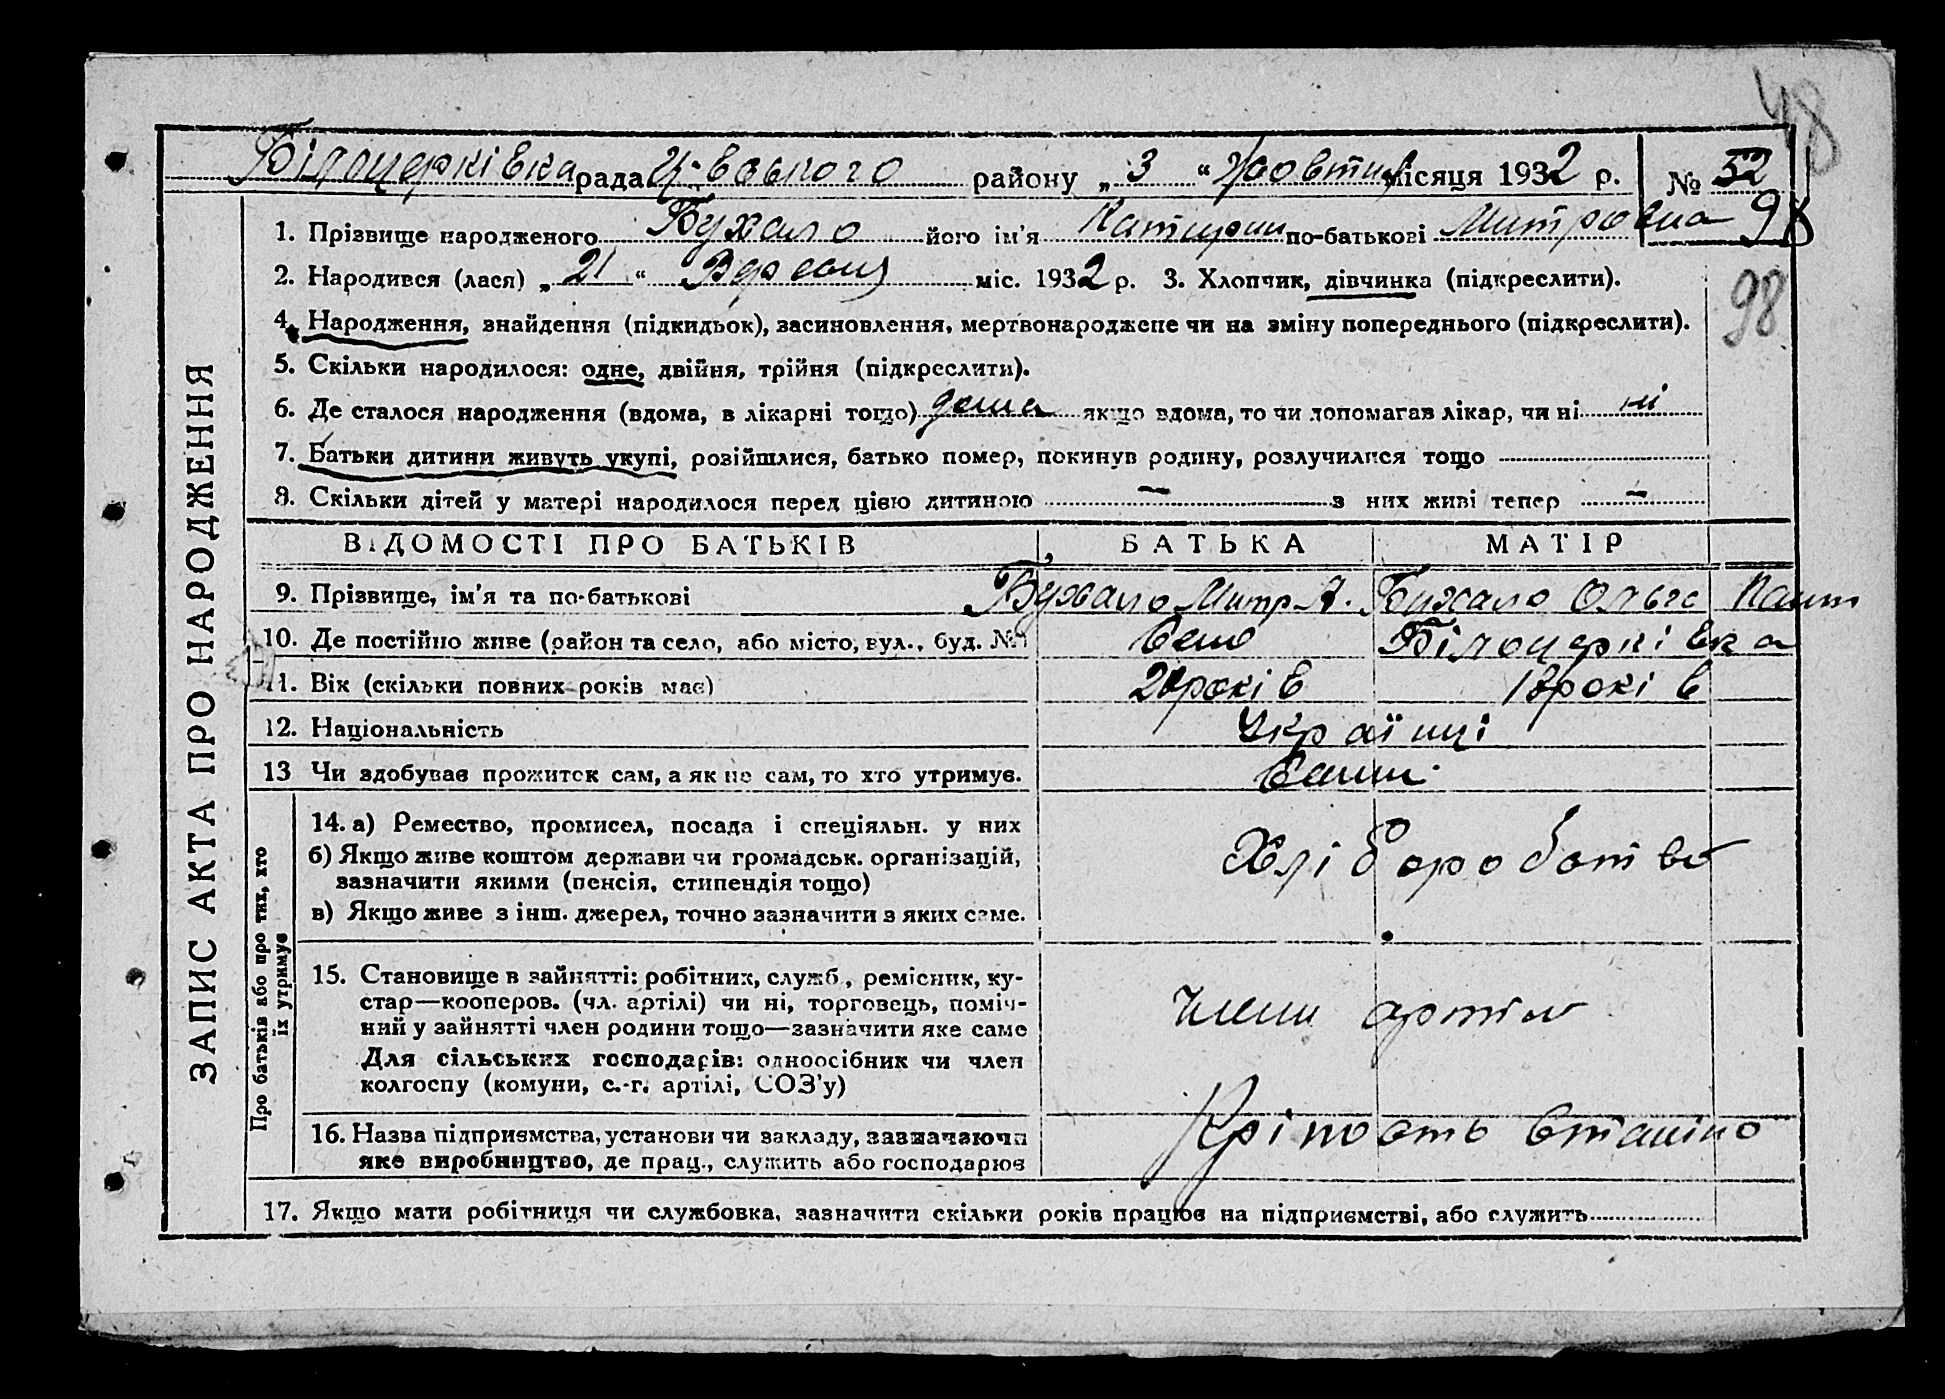 48
Білоцерківка рада району „ 3 “ жовтня місяця 1932 р. № 52
98
1. Прізвище народженого Бухало його ім'я Катирин по-батькові Митровна
2. Народився (лася) „ 21 “ Вересня міс. 1932 р. 3. Хлопчик, дівчинка (підкреслити).
98
4. Народження, знайдення (підкидьок), засиновлення, мертвонароджене чи на зміну попереднього (підкреслити).
5. Скільки народилося: одне, двійня, трійня (підкреслити).
6. Де сталося народження (вдома, в лікарні тощо) дома якщо вдома, то чи допомагав лікар, чи ні ні
7. Батьки дитини живуть укупі, розійшлися, батько помер, покинув родину, розлучилися тощо
8. Скільки дітей у матері народилося перед цією дитиною — з них живі тепер –
ЗАПИС АКТА ПРО НАРОДЖЕННЯ
ВІДОМОСТІ ПРО БАТЬКІВ БАТЬКА МАТІР
9. Прізвище, ім'я та по-батькові Бухало Митр А. Бухало Ольга
10. Де постійно живе (район та село, або місто, вул., буд. № Село Білоцерківка
11. Вік (скільки повних років має) 20 років 18 років
12. Національність Українці
13 Чи здобуває прожиток сам, а як не сам, то хто утримує. Самі
Про батьків або про тих, хто
їх утримує
14. а) Ремество, промисел, посада і спеціяльн. у них
б) Якщо живе коштом держави чи громадськ. організацій,
зазначити якими (пенсія, стипендія тощо)
в) Якщо живе з інш. джерел, точно зазначити з яких саме.
Хліборобство
15. Становище в зайнятті: робітник, служб., ремісник, ку-
стар—кооперов. (чл. артілі) чи ні, торговець, поміч-
ний у зайнятті член родини тощо—зазначити яке саме
Для сільських господарів: одноосібник чи член
колгоспу (комуни, с.-г. артілі, СОЗ'у)
Члени артіли
16. Назва підприємства, установи чи закладу, зазначаючи
яке виробництво, де прац., служить або господарює
Кріпость
17. Якщо мати робітниця чи службовка, зазначити скільки років працює на підприємстві, або служить